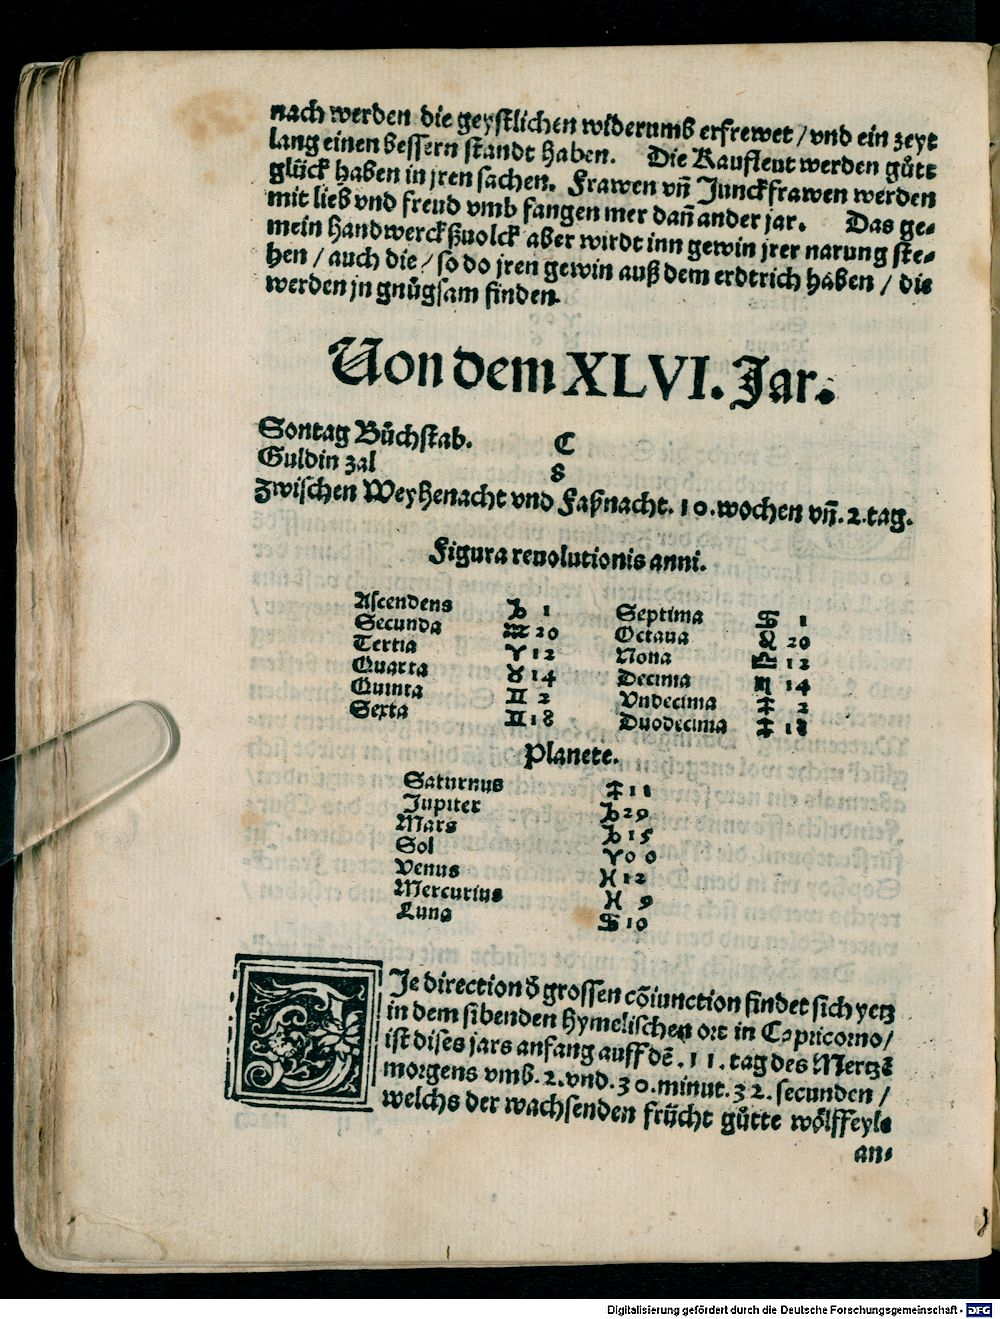 nach werden die geystlichen widerumb erfrewet / vnd ein zeyt
lang einen bessern standt haben. Die Kaufleut werden gůtt
glück haben in jren sachen. Frawen vñ Junckfrawen werden
mit lieb vnd freud vmb fangen mer dañ ander jar. Das ge-
mein handwerckßuolck aber wirdt inn gewin jrer narung ste-
hen / auch die / so do jren gewin auß dem erdtrich haben / die
werden jn gnůgsam finden.
Von dem XLVI. Jar.
Sontag Bůchstab. C
Guldin zal 8
Zwischen Weyhenacht vnd Faßnacht. 10. wochen vñ. 2. tag.
Figura reuolutionis anni.
Ascendens ♑ 1 Septima ♋ 1
Secunda ♒ 20 Octaua ♌ 20
Tertia ♈ 12 Nona ♎ 12
Quarta ♉ 14 Decima ♏ 14
Quinta ♊ 2 Vndecima ♐ 2
Sexta ♊ 18 Duodecima ♐ 18
Planete.
Saturnus ♐ 11
Jupiter ♑ 29
Mars ♑ 15
Sol ♈ 0 0
Venus ♓ 12
Mercurius ♓ 9
Luna ♋ 10
DJe direction d̃ grossen cõiunction findet sich yetz
in dem sibenden hymelischen ort in Capricorno /
ist dises jars anfang auff dẽ. 11. tag des Mertzẽ
morgens vmb. 2. vnd. 30. minut. 32. secunden /
welchs der wachsenden frücht gůtte wölffeyle
an-
Digitalisierung gefördert durch die Deutsche Forschungsgemeinschaft - DFG